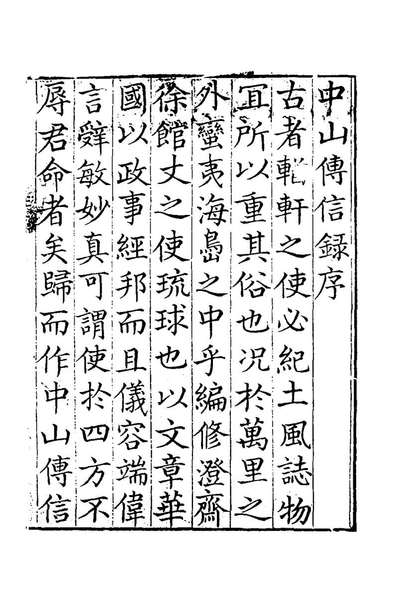 中山傳信錄序
古者輶軒之使必紀土風誌物
冝所以重其俗也况於萬里之
外蠻夷海島之中乎編修澄齋
徐館丈之使琉球也以文章華
國以政事經邦而且儀容端偉
言辭敏妙真可謂使於四方不
辱君命者矣歸而作中山傳信